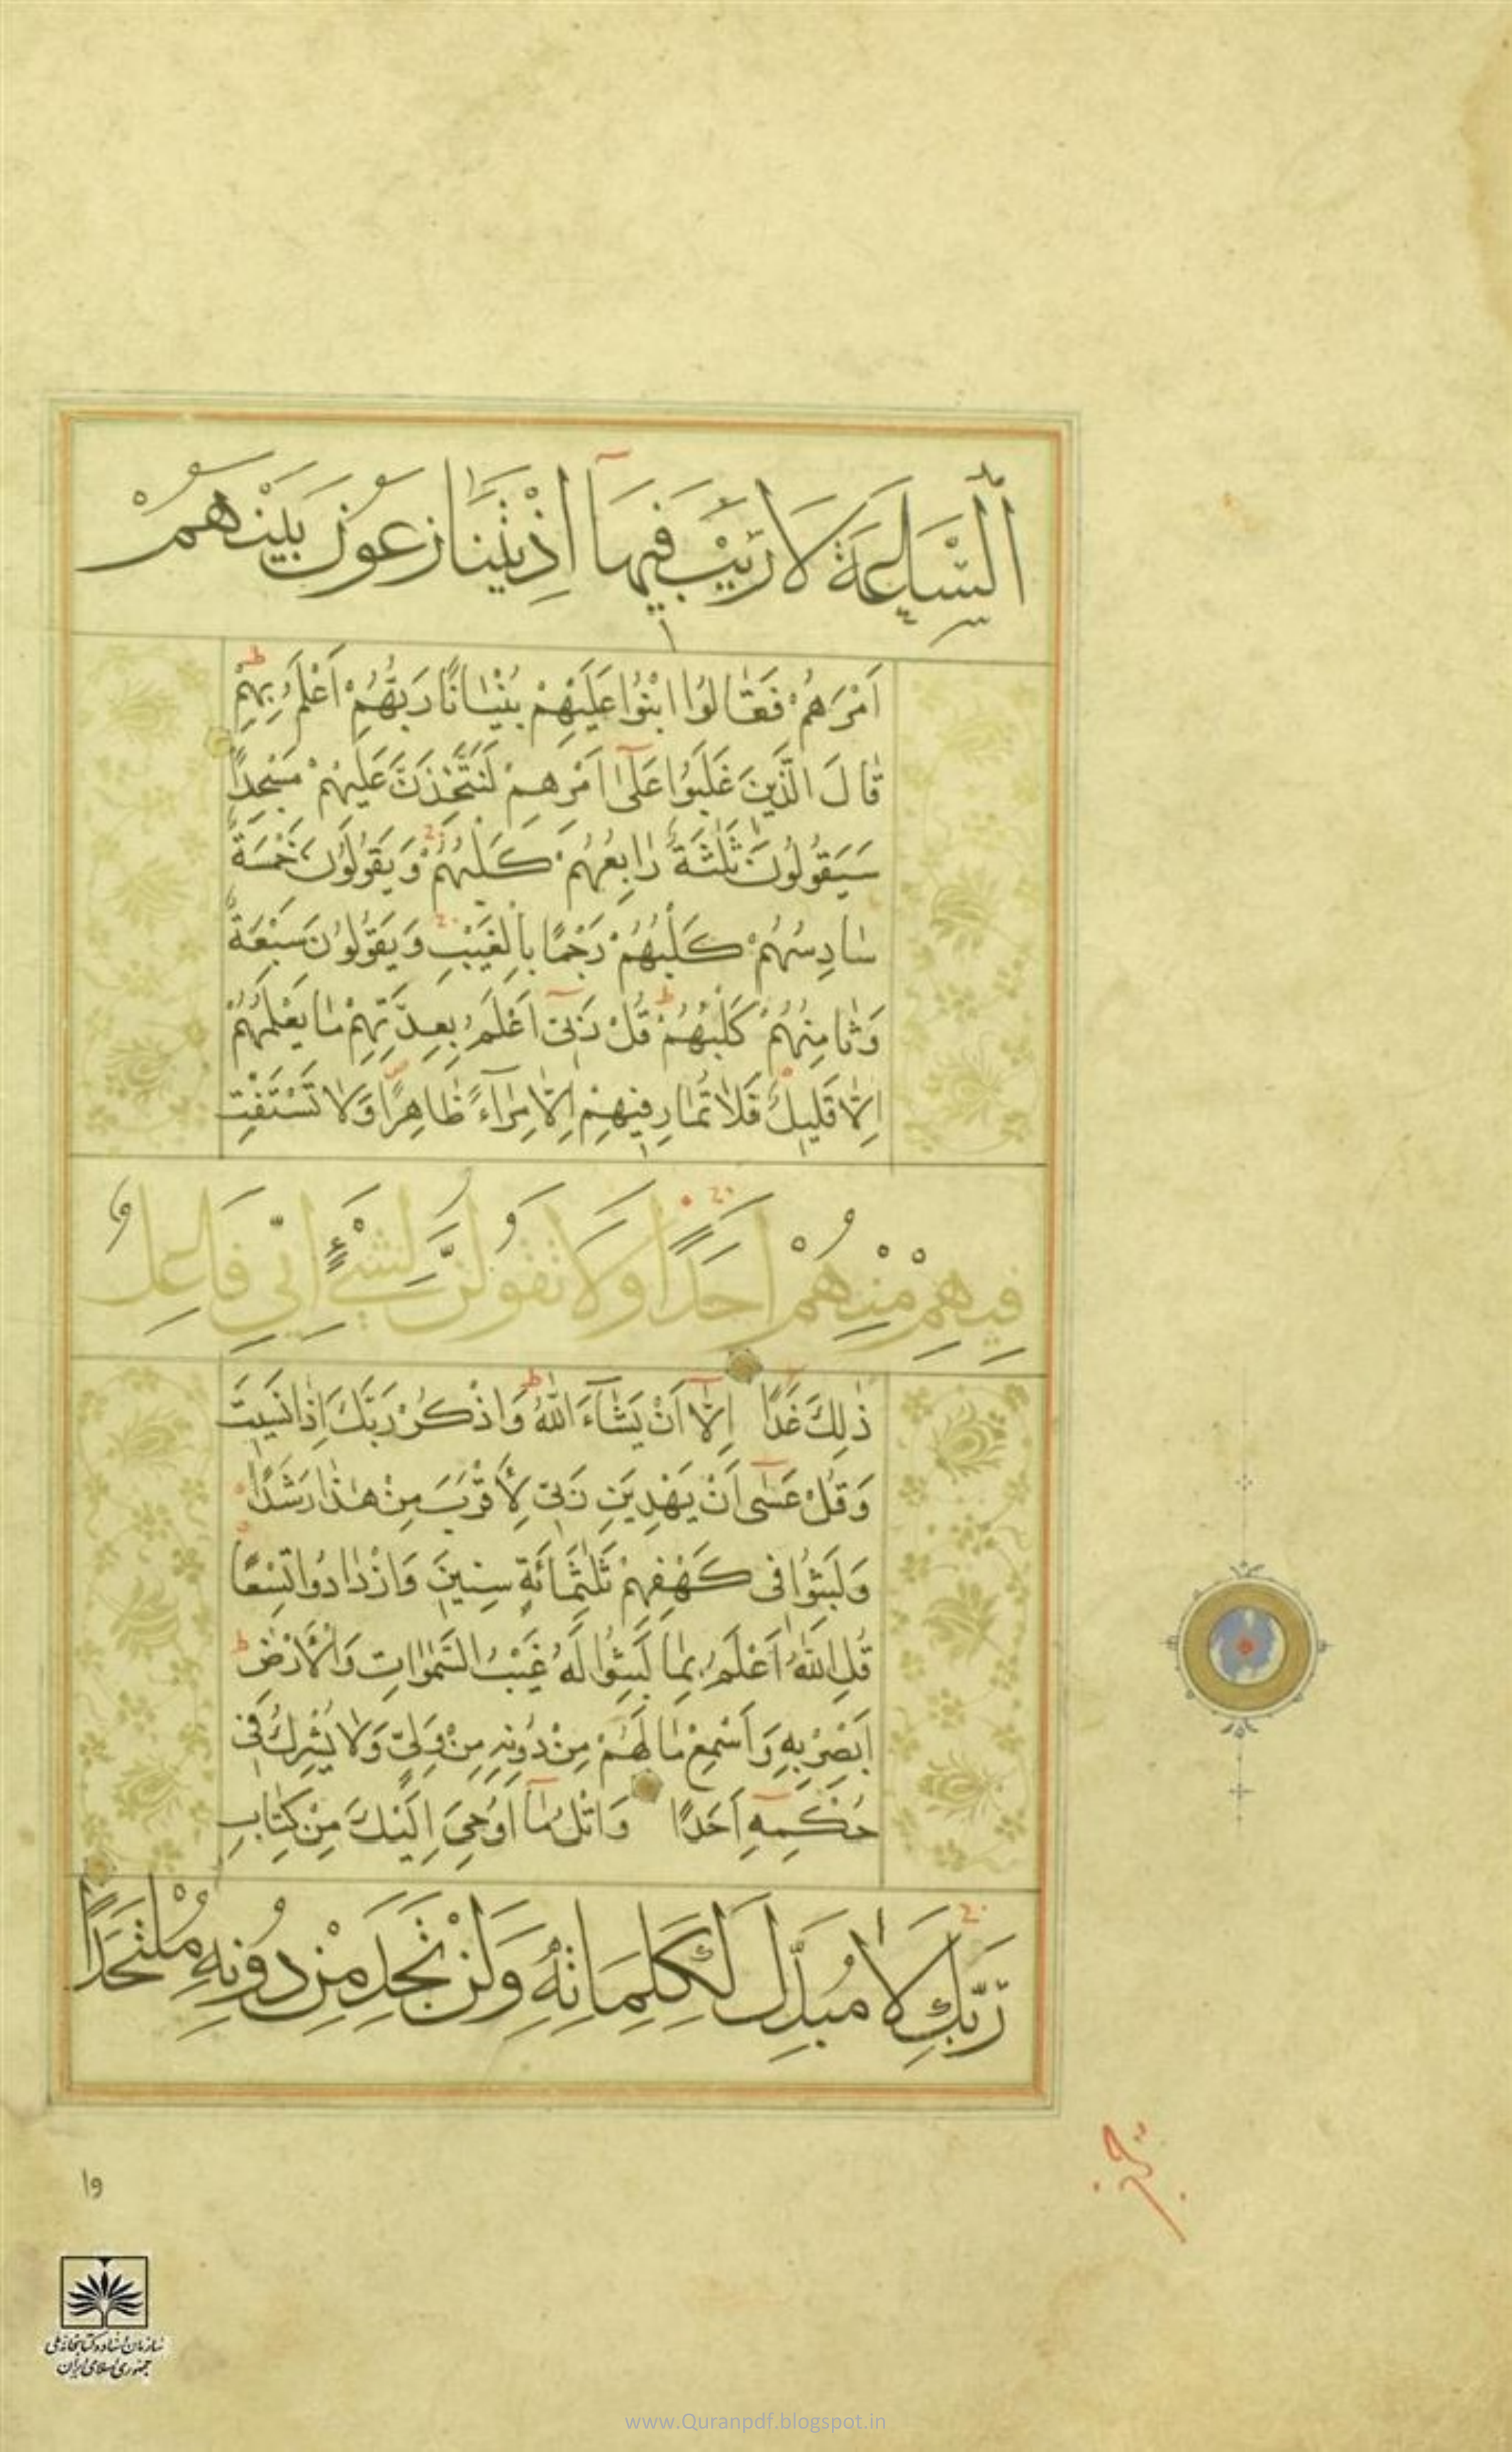 اَلسَّاعَةَ لَا رَيْبَ فِيهَآ اِذْ يَتَنَازَعُونَ بَيْنَهُمْ
اَمْرَهُمْ فَقَالُوا ابْنُوا عَلَيْهِمْ بُنْيَانًا رَبُّهُمْ اَعْلَمُ بِهِمْ ط
قَالَ الَّذِينَ غَلَبُوا عَلٰٓى اَمْرِهِمْ لَنَتَّخِذَنَّ عَلَيْهِمْ مَسْجِدًا
سَيَقُولُونَ ثَلٰثَةٌ رَابِعُهُمْ كَلْبُهُمْ وَيَقُولُونَ خَمْسَةٌ
سَادِسُهُمْ كَلْبُهُمْ رَجْمًا بِالْغَيْبِ وَيَقُولُونَ سَبْعَةٌ
وَثَامِنُهُمْ كَلْبُهُمْ ط قُلْ رَبِّىٓ اَعْلَمُ بِعِدَّتِهِمْ مَا يَعْلَمُهُمْ
اِلَّا قَلِيلٌ فَلَا تُمَارِ فِيهِمْ اِلَّا مِرَآءً ظَاهِرًا وَلَا تَسْتَفْتِ
فِيهِمْ مِنْهُمْ اَحَدًا وَلَا تَقُولَنَّ لِشَيْءٍ اِنِّي فَاعِلٌ
ذٰلِكَ غَدًا اِلَّآ اَنْ يَشَآءَ اللّٰهُ ط وَاذْكُرْ رَبَّكَ اِذَا نَسِيتَ
وَقُلْ عَسٰٓى اَنْ يَهْدِيَنِ رَبِّى لِاَقْرَبَ مِنْ هٰذَا رَشَدًا
وَلَبِثُوا فِى كَهْفِهِمْ ثَلٰثَمِائَةٍ سِنِينَ وَازْدَادُوا تِسْعًا
قُلِ اللّٰهُ اَعْلَمُ بِمَا لَبِثُوا لَهُ غَيْبُ السَّمٰوَاتِ وَالْاَرْضِ ط
اَبْصِرْ بِهِ وَاَسْمِعْ مَا لَهُمْ مِنْ دُونِهِ مِنْ وَلِىٍّ وَلَا يُشْرِكُ فِى
حُكْمِهِٓ اَحَدًا وَاتْلُ مَآ اُوحِىَ اِلَيْكَ مِنْ كِتَابِ
رَبِّكَ لَا مُبَدِّلَ لِكَلِمَاتِهِ وَلَنْ تَجِدَ مِنْ دُونِهِ مُلْتَحَدًا
سازمان اسناد و کتابخانه ملی
جمهوری اسلامی ایران
www.Quranpdf.blogspot.in